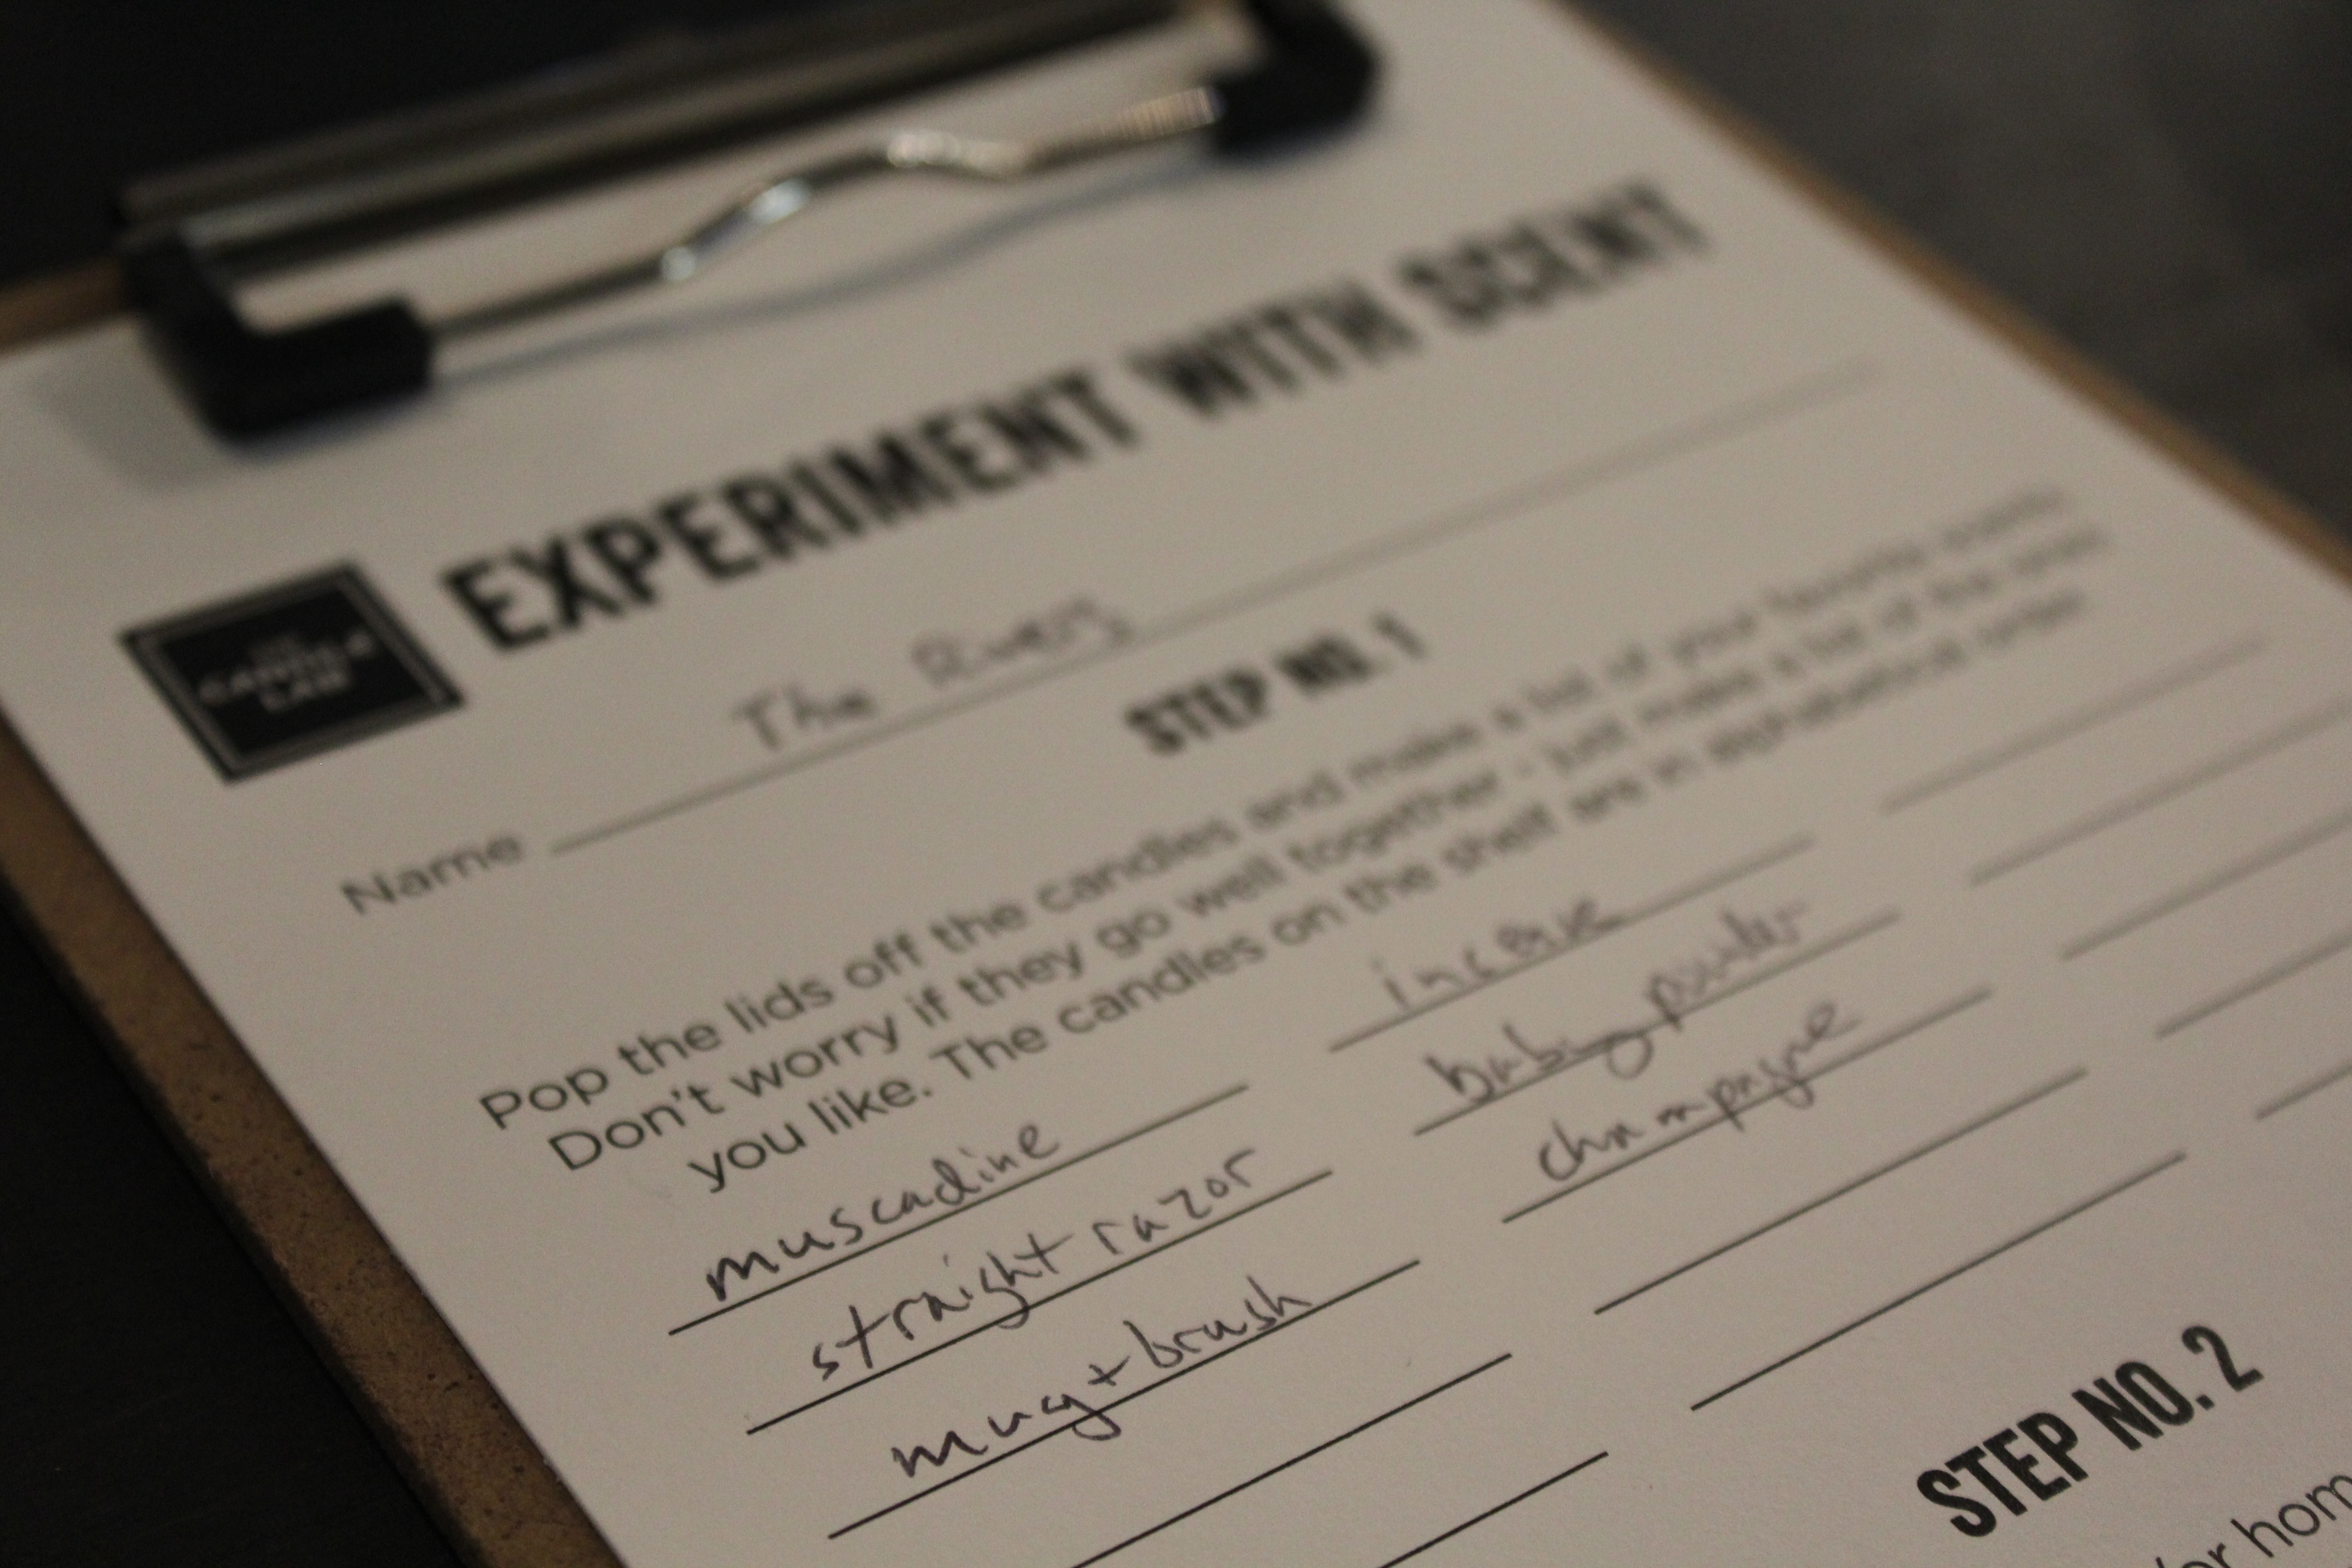 EXPERIMENT WITH SCENT
THE
CANDLE
LAB
Name The Rivers
STEP NO. 1
Pop the lids off the candles and make a list of your favorite scents.
Don't worry if they go well together - just make a list of the ones
you like. The candles on the shelf are in alphabetical order.
muscadine
straight razor
mug + brush
incense
baby powder
champagne
STEP NO. 2
or hom